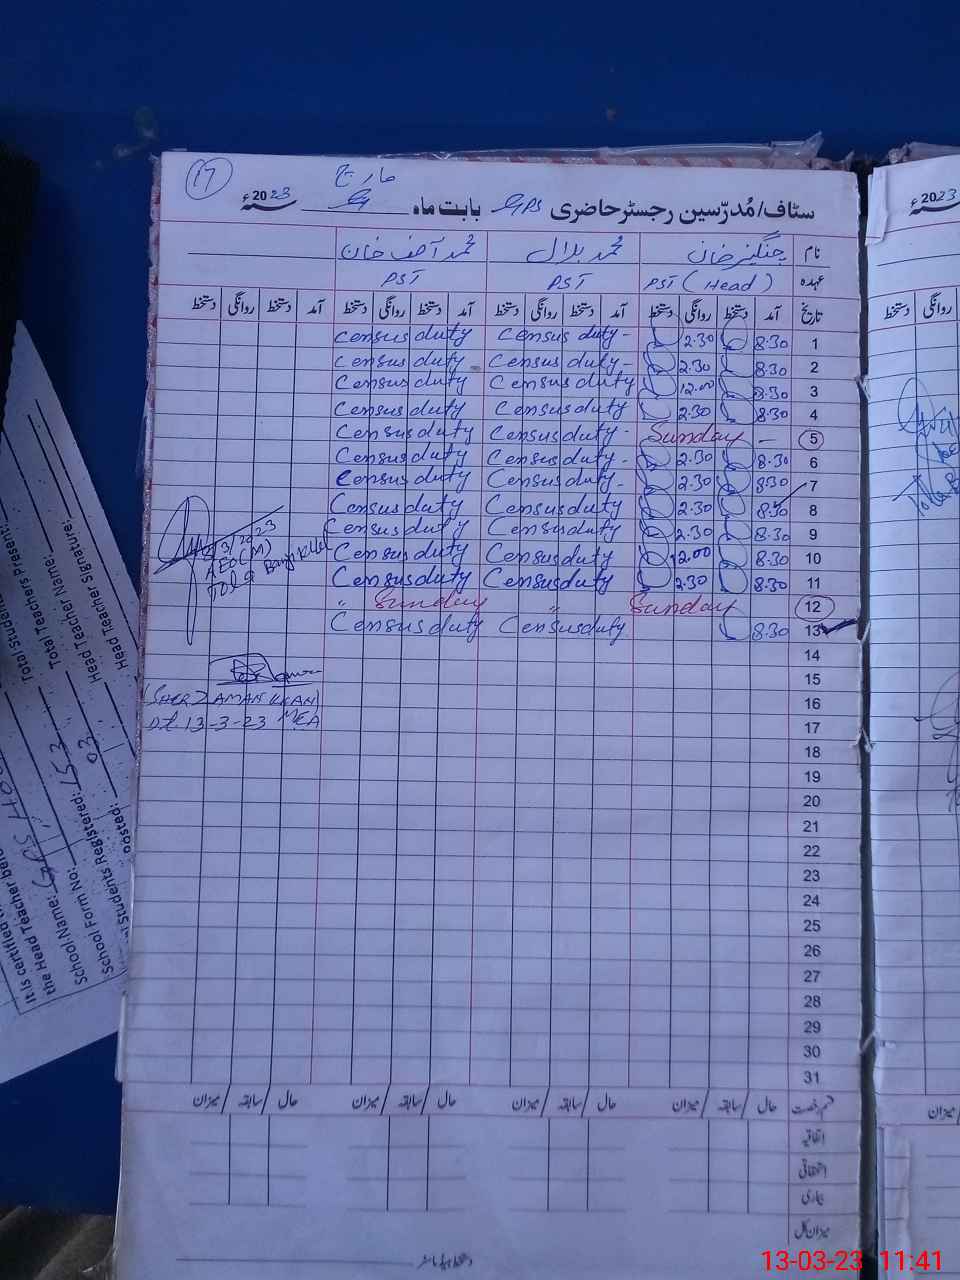 17
مارچ
سٹاف/مُدرّسین رجسٹر حاضری GPS بابت ماہ سنہ 2023ء
نام چنگیز خان محمد بلال محمد آصف خان
عہدہ PST (Head) PST PST
تاریخ آمد دستخط روانگی دستخط آمد دستخط روانگی دستخط آمد دستخط روانگی دستخط آمد دستخط روانگی دستخط
Census duty Census duty - 2.30 8.30 1
Census duty Census duty - 2.30 8.30 2
Census duty Census duty 12.00 8.30 3
Census duty Census duty 2.30 8.30 4
Census duty Census duty - Sunday — 5
Census duty Census duty - 2.30 8.30 6
Census duty Census duty - 2.30 8.30 7
Census duty Census duty 2.30 8.30 8
Census duty Census duty 2.30 8.30 9
Census duty Census duty 12.00 8.30 10
Census duty Census duty 2.30 8.30 11
" Sunday " Sunday 12
Census duty Census duty 8.30 13
14
15
16
17
18
19
20
21
22
23
24
25
26
27
28
29
30
31
3/2023
AEO(M)
(SHER ZAMAN KHAN)
Dt. 13-3-23 MEA
قسم رخصت حال / سابقہ / میزان حال / سابقہ / میزان حال / سابقہ / میزان حال / سابقہ / میزان
اتفاقیہ
استحقاقی
بیماری
میزان کل
دستخط ہیڈ ماسٹر
2023ء سنہ
روانگی دستخط
میزان
It is certified
the Head Teacher
School Name: GPS
School Form No:
Students Registered: 153
posted: 03
Total students
Total Teachers Present:
Head Teacher Name:
Head Teacher Signature:
13-03-23 11:41